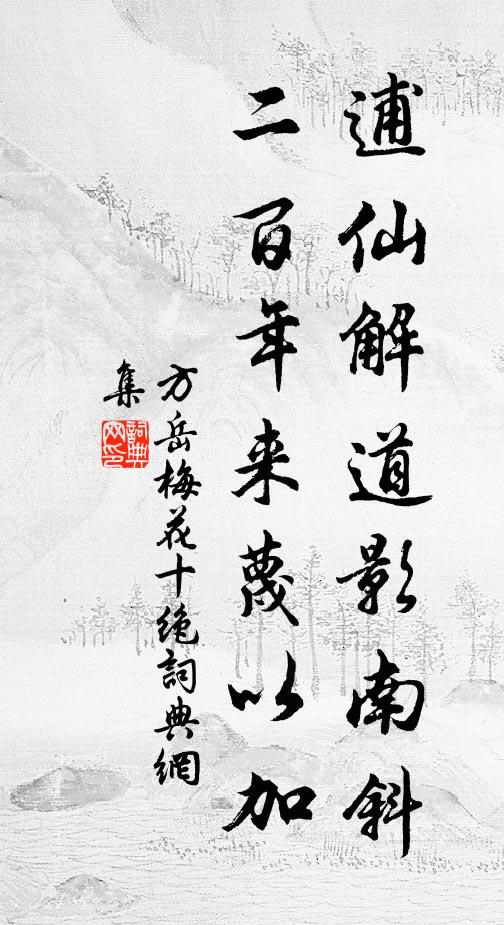 逋仙解道影南斜
二百年来蔑以加
方岳梅花十绝詞典網
集
詞典网印